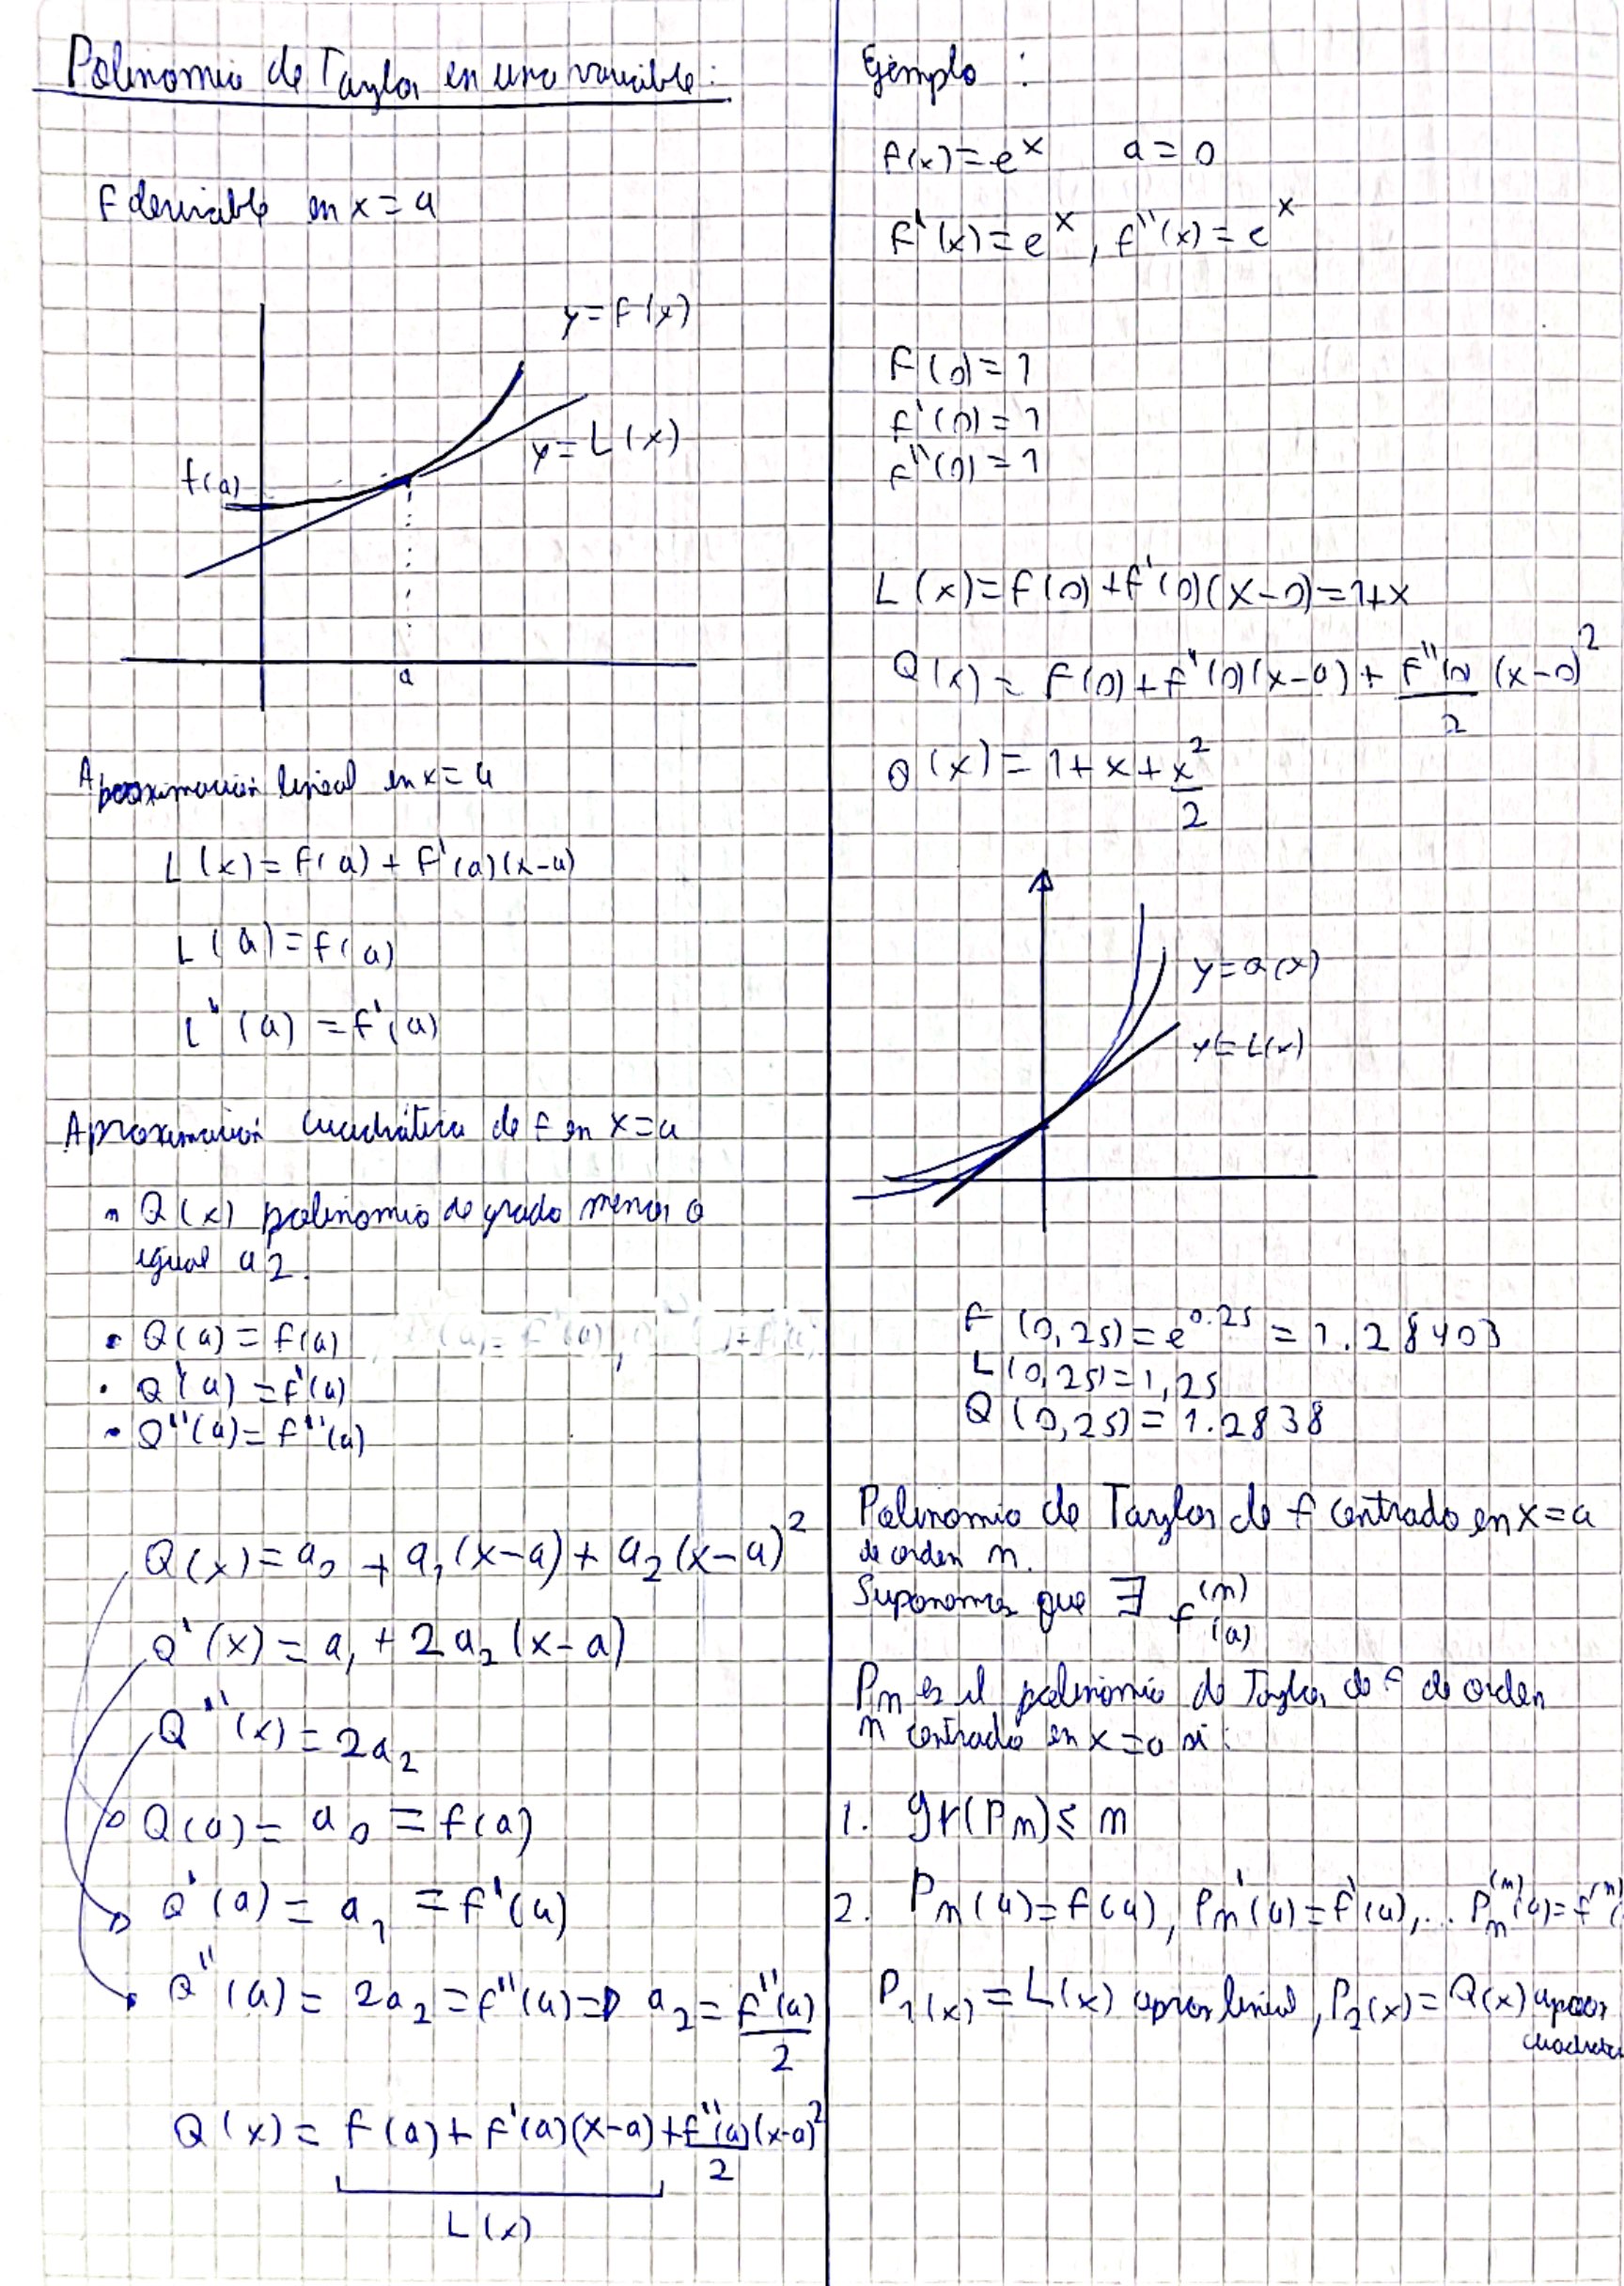 Polinomio de Taylor en una variable:
F derivable en x = a
y = F(x)
y = L(x)
f(a)
a
Aproximación lineal en x = a
L(x) = F(a) + F'(a)(x-a)
L(a) = f(a)
L'(a) = f'(a)
Aproximación cuadrática de f en x = a
Q(x) polinomio de grado menor o
igual a 2.
• Q(a) = f(a)
• Q'(a) = f'(a)
• Q''(a) = f''(a)
Q(x) = a₀ + a₁(x-a) + a₂(x-a)²
Q'(x) = a₁ + 2a₂(x-a)
Q''(x) = 2a₂
Q(a) = a₀ = f(a)
Q'(a) = a₁ = f'(a)
Q''(a) = 2a₂ = f''(a) ⇒ a₂ = f''(a)/2
Q(x) = f(a) + f'(a)(x-a) + f''(a)/2 (x-a)²
L(x)
Ejemplo :
f(x) = eˣ a = 0
F'(x) = eˣ, f''(x) = eˣ
F(0) = 1
f'(0) = 1
f''(0) = 1
L(x) = f(0) + f'(0)(x-0) = 1+x
Q(x) = F(0) + f'(0)(x-0) + F''(0)/2 (x-0)²
Q(x) = 1 + x + x²/2
y = Q(x)
y = L(x)
F(0,25) = e^0.25 = 1.28403
L(0,25) = 1,25
Q(0,25) = 1.2838
Polinomio de Taylor de f centrado en x = a
de orden n.
Suponemos que ∃ f⁽ⁿ⁾(a)
Pn es el polinomio de Taylor de f de orden
n centrado en x = a si:
1. gr(Pn) ≤ n
2. Pn(a) = f(a), Pn'(a) = f'(a), ... Pn⁽ⁿ⁾(a) = f⁽ⁿ⁾(
P₁(x) = L(x) aprox lineal, P₂(x) = Q(x) aprox